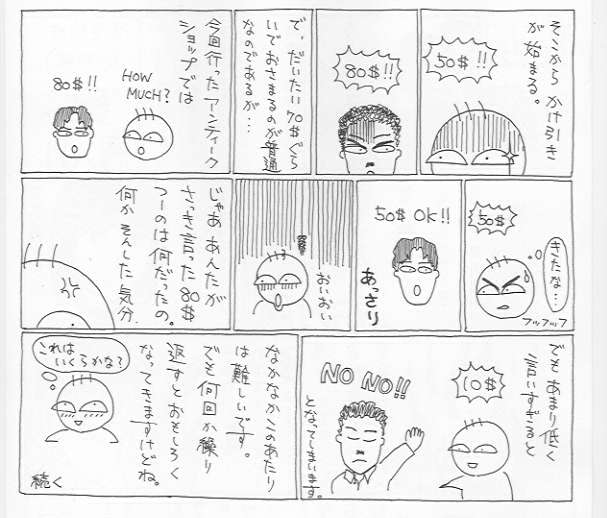 そこから かけ引き
が 始まる。
50$!!
80$!!
で、だいたい70$ぐら
いでおさまるのが普通
なのであるが…
今回行ったアンティーク
ショップでは
HOW
MUCH?
80$!!
50$
きたな…
フッフッフ
50$ OK!!
あっさり
おいおい
じゃああんたが
さっき言った80$
つーのは何だったの。
何かそんした気分
でもあまり低く
言いすぎると
10$
NO NO!!
となってしまいます。
なかなかこのあたり
は難しいです。
でも何回か繰り
返すとおもしろく
なってきますけどね。
これは
いくらかな?
続く